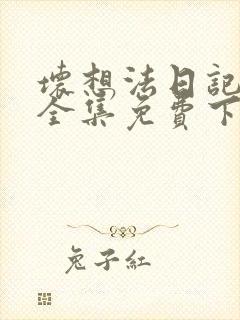 壞想法日記
全集免費下
兔子紅